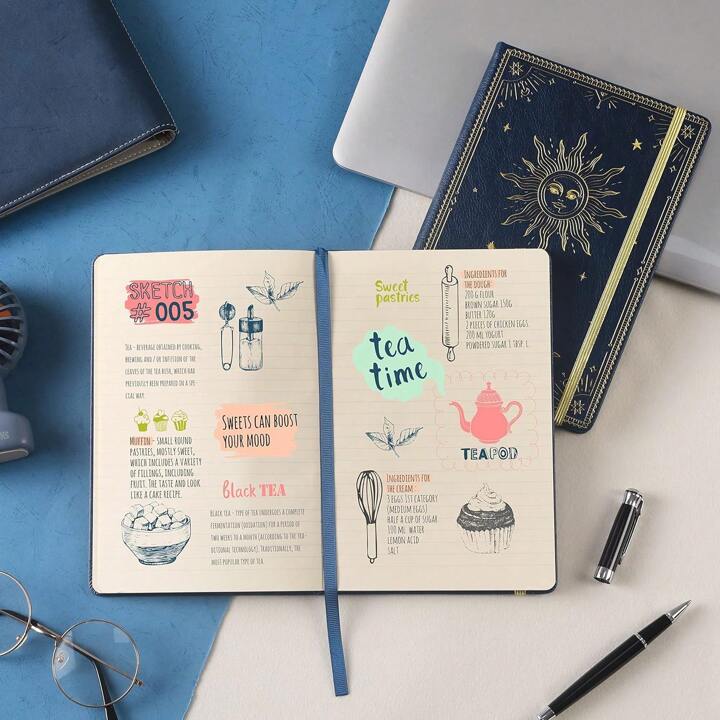 SKETCH
# 005
TEA - BEVERAGE OBTAINED BY COOKING,
BREWING AND / OR INFUSION OF THE
LEAVES OF THE TEA BUSH, WHICH HAD
PREVIOUSLY BEEN PREPARED IN A SPE-
CIAL WAY.
MUFFIN - SMALL ROUND
PASTRIES, MOSTLY SWEET,
WHICH INCLUDES A VARIETY
OF FILLINGS, INCLUDING
FRUIT. THE TASTE AND LOOK
LIKE A CAKE RECIPE.
SWEETS CAN BOOST
YOUR MOOD
Black TEA
BLACK TEA - TYPE OF TEA UNDERGOES A COMPLETE
FERMENTATION (OXIDATION) FOR A PERIOD OF
TWO WEEKS TO A MONTH (ACCORDING TO THE TRA-
DITIONAL TECHNOLOGY). TRADITIONALLY, THE
MOST POPULAR TYPE OF TEA.
Sweet
pastries
INGREDIENTS FOR
THE DOUGH:
200 G FLOUR
BROWN SUGAR 150G
BUTTER 120G
2 PIECES OF CHICKEN EGGS.
200 ML YOGURT
POWDERED SUGAR 1 TBSP. L.
tea
time
TEAPOD
INGREDIENTS FOR
THE CREAM:
3 EGGS 1ST CATEGORY
(MEDIUM EGGS)
HALF A CUP OF SUGAR
100 ML WATER
LEMON ACID
SALT